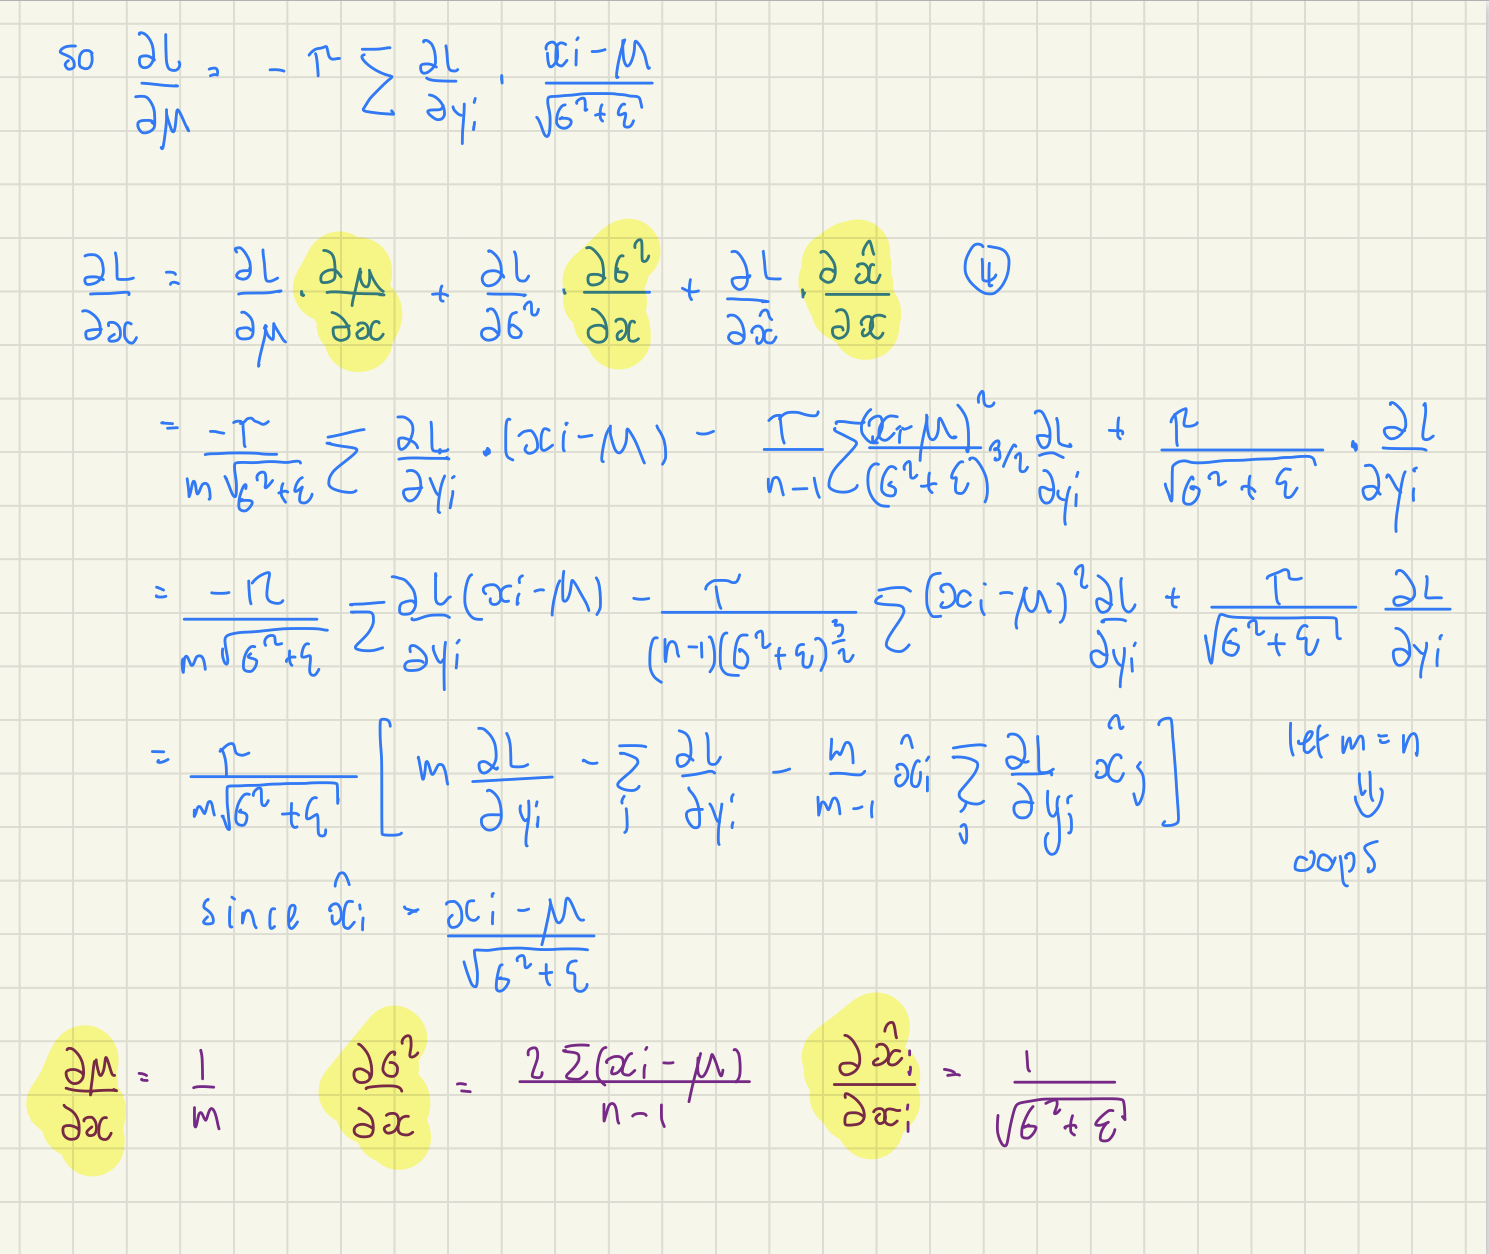 so ∂L/∂μ = - r ∑ ∂L/∂yi · (xi-μ)/√(σ²+ε)
∂L/∂x = ∂L/∂μ · ∂μ/∂x + ∂L/∂σ² · ∂σ²/∂x + ∂L/∂x̂ · ∂x̂/∂x ④
= -r/(m√(σ²+ε)) ∑ ∂L/∂yi · (xi-μ) - r/(n-1) ∑ (xi-μ)²/(σ²+ε)^3/2 ∂L/∂yi + r/√(σ²+ε) · ∂L/∂yi
= -r/(m√(σ²+ε)) ∑ ∂L/∂yi (xi-μ) - r/((n-1)(σ²+ε)^3/2) ∑ (xi-μ)² ∂L/∂yi + r/√(σ²+ε) ∂L/∂yi
= r/(m√(σ²+ε)) [ m ∂L/∂yi - ∑j ∂L/∂yi - m/(m-1) x̂i ∑j ∂L/∂yj x̂j ] let m = n
⇓
oops
since x̂i = (xi-μ)/√(σ²+ε)
∂μ/∂x = 1/m ∂σ²/∂x = 2∑(xi-μ)/(n-1) ∂x̂i/∂xi = 1/√(σ²+ε)